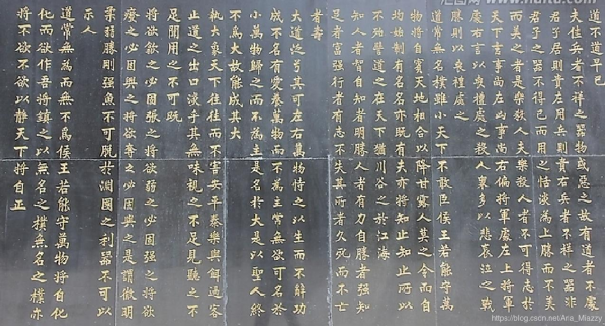 道不道早已
夫佳兵者不祥之器物或惡之故有道者不處
君子居則貴左用兵則貴右兵者不祥之器非
君子之器不得已而用之恬淡為上勝而不美
而美之者是樂殺人夫樂殺人者不可得志於
天下吉事尚左凶事尚右偏將軍處左上將軍
處右言以喪禮處之殺人眾多以悲哀泣之戰
勝則以喪禮處之
道常無名樸雖小天下不敢臣侯王若能守萬
物將自賓天地相合以降甘露人莫之令而自
均始制有名名亦既有夫亦將知止知止所以
不殆譬道之在天下猶川谷之於江海
知人者智自知者明勝人者有力自勝者強知
足者富強行者有志不失其所者久死而不亡
者壽
大道氾兮其可左右萬物恃之以生而不辭功
成不名有愛養萬物而不為主常無欲可名於
小萬物歸之而不為主是名於大是以聖人終
不為大故能成其大
執大象天下往往而不害安平泰樂與餌過客
止道之出口淡乎其無味視之不足見聽之不
足聞用之不可既
將欲歙之必固張之將欲弱之必固強之將欲
廢之必固興之將欲奪之必固與之是謂微明
柔弱勝剛強魚不可脫於淵國之利器不可以
示人
道常無為而無不為侯王若能守萬物將自化
化而欲作吾將鎮之以無名之樸無名之樸亦
將不欲不欲以靜天下將自正
https://blog.csdn.net/Aria_Miazzy